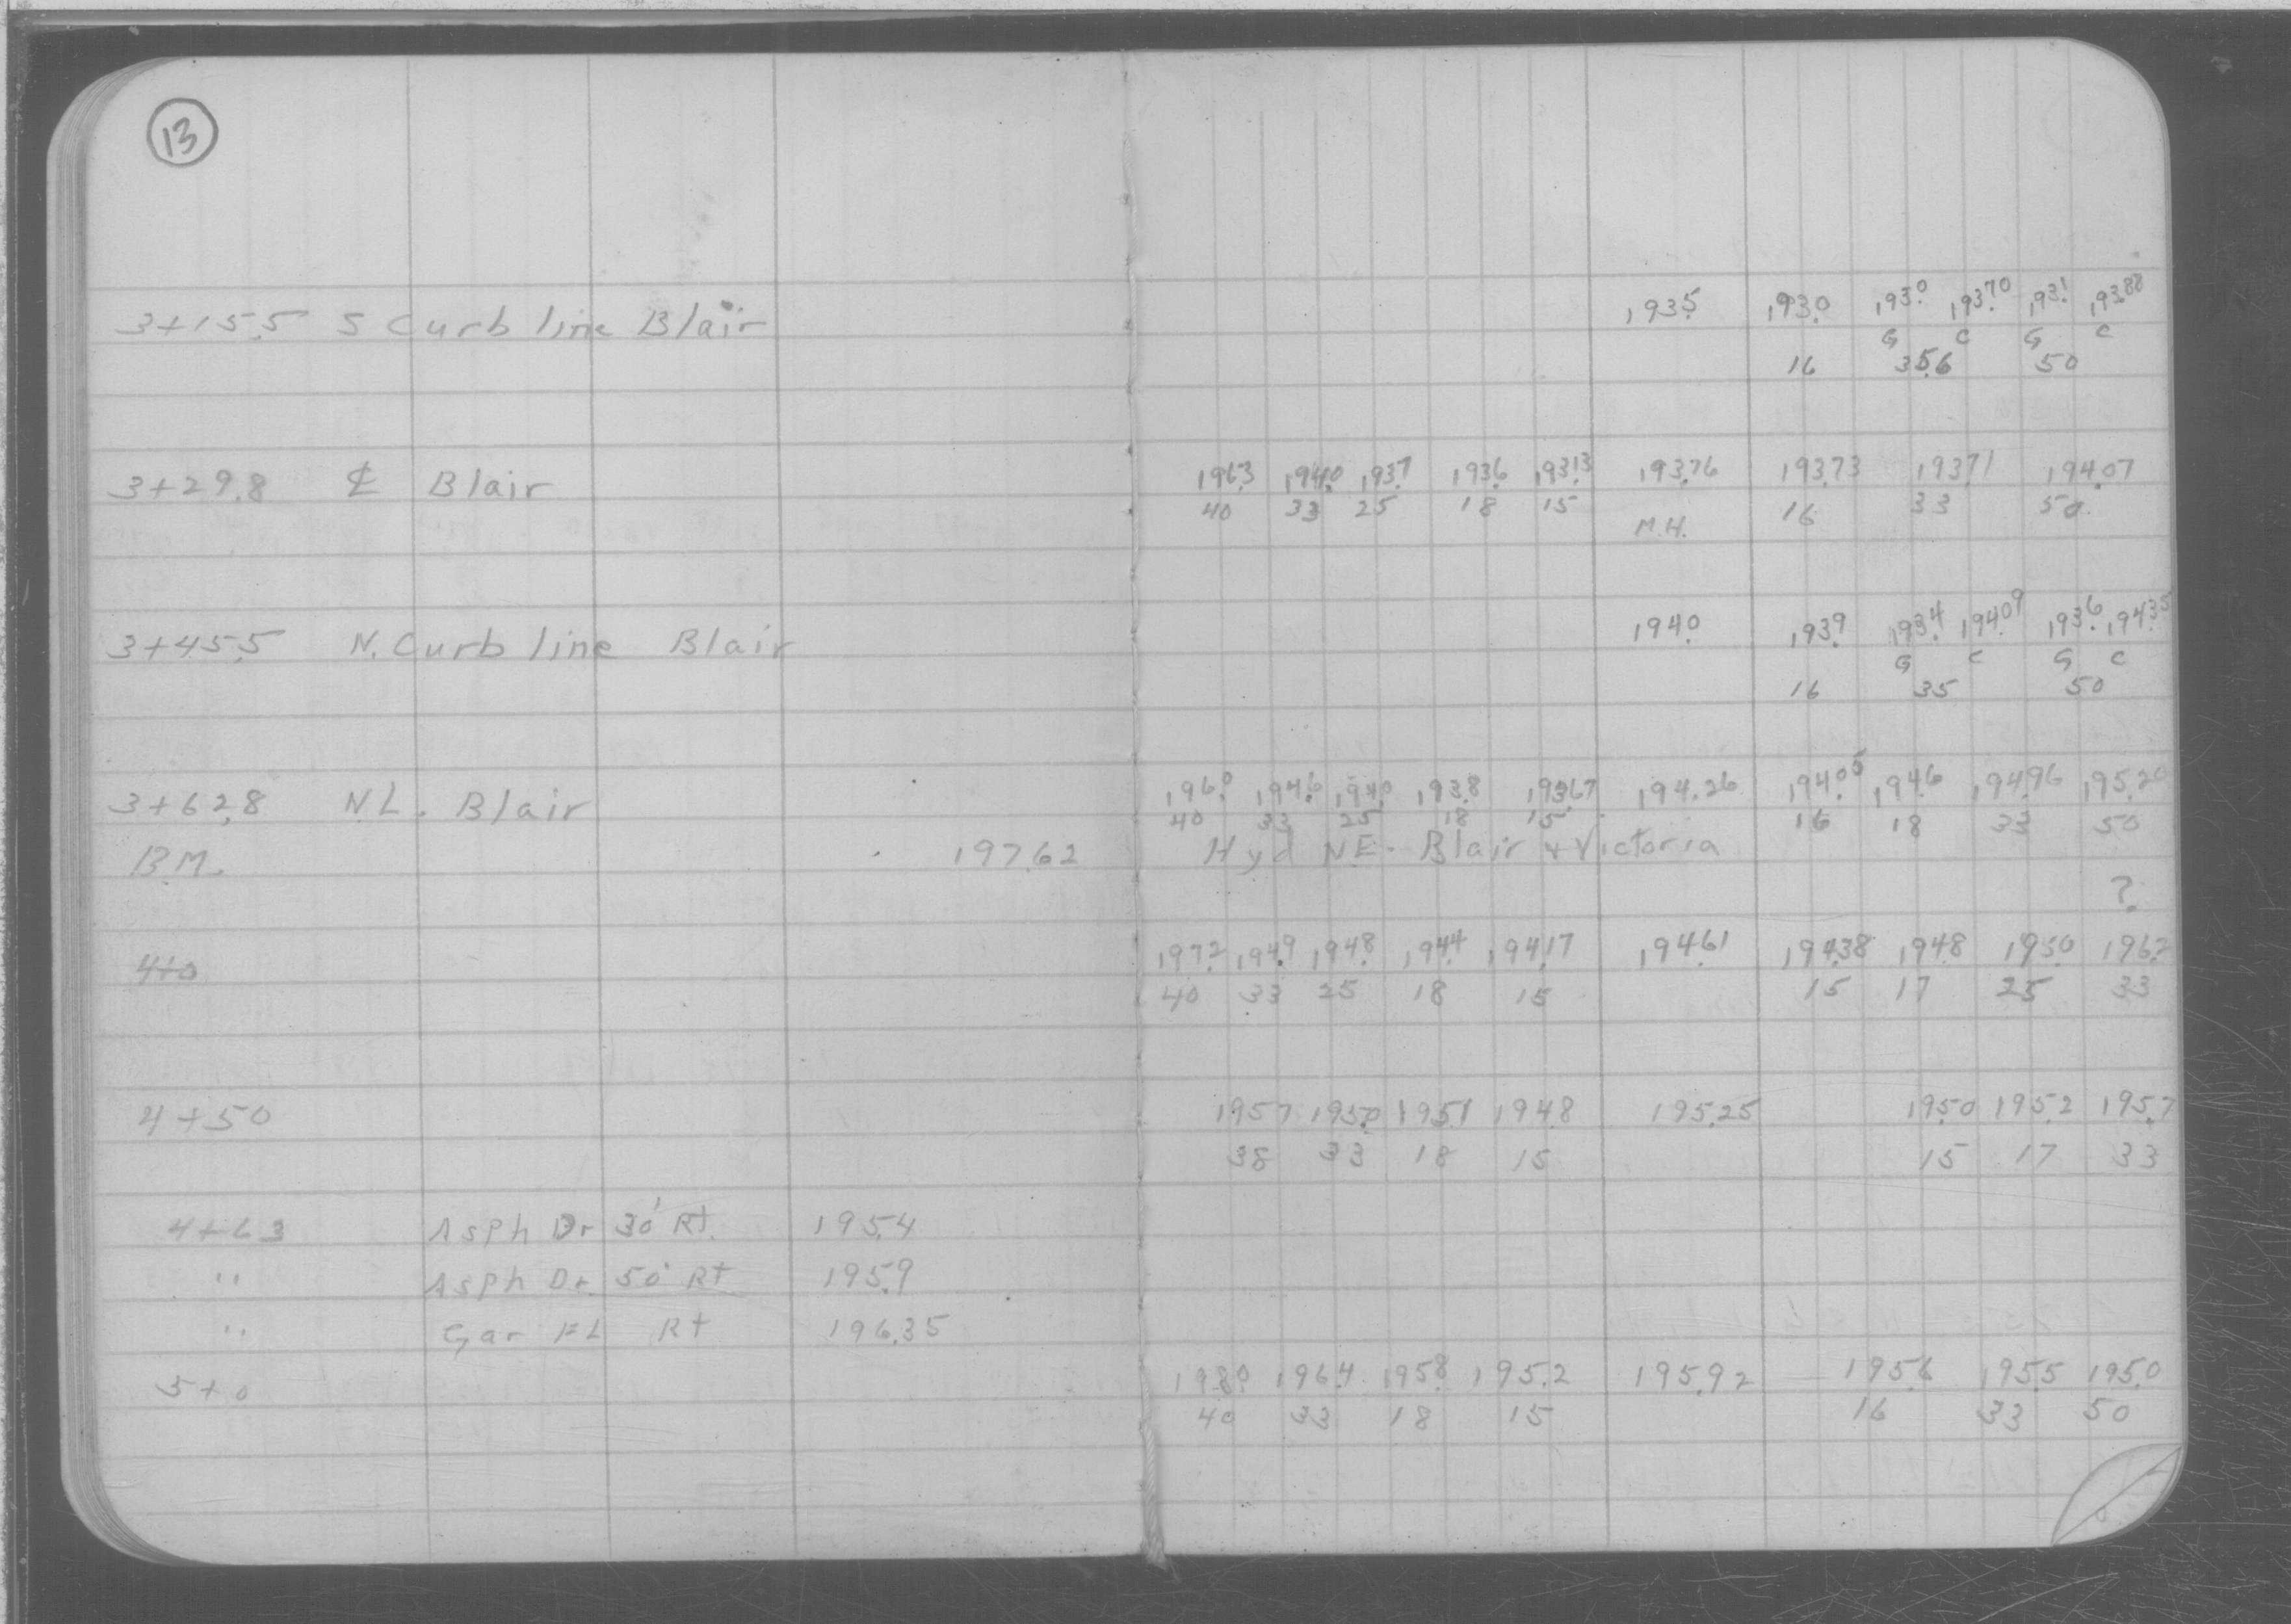 13
3+15.5 S Curb line Blair 193.5 193.0 193.0 193.70 193.1 193.88
G C G C
16 35.6 50
3+29.8 ℄ Blair 196.3 194.0 193.7 193.6 193.13 193.76 193.73 193.71 194.07
40 33 25 18 15 M.H. 16 33 50
3+45.5 N. Curb line Blair 194.0 193.9 193.4 194.09 193.6 194.35
G C G C
16 35 50
3+62.8 N.L. Blair 196.0 194.6 194.0 193.8 193.67 194.26 194.05 194.6 194.96 195.20
40 33 25 18 15 16 18 33 50
B.M. 197.62 Hyd N.E. Blair & Victoria
?
4+0 197.2 194.9 194.8 194.4 194.17 194.61 194.38 194.8 195.0 196.2
40 33 25 18 15 15 17 25 33
4+50 195.7 195.0 195.1 194.8 195.25 195.0 195.2 195.7
38 33 18 15 15 17 33
4+63 Asph Dr 30' Rt. 195.4
" Asph Dr. 50' Rt 195.9
" Gar FL Rt 196.35
5+0 198.0 196.4 195.8 195.2 195.92 195.6 195.5 195.0
40 33 18 15 16 33 50